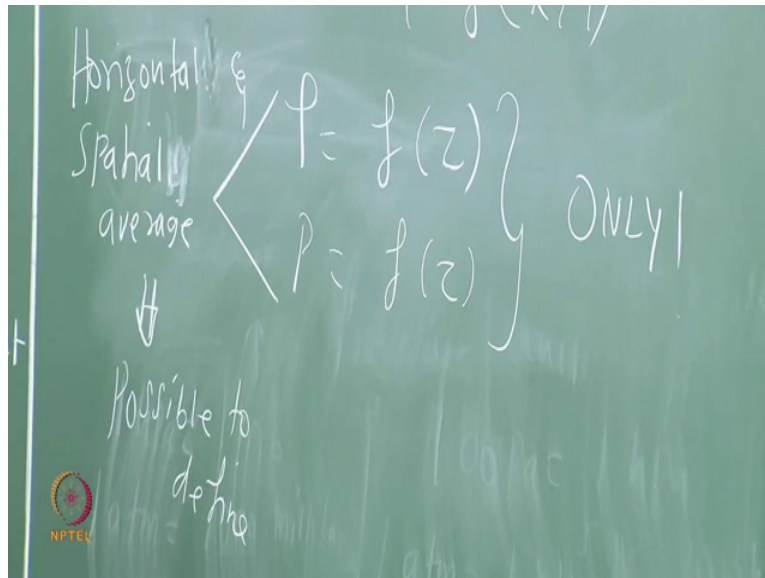 Horizontal &
Spatially
average
ρ = f(z)
P = f(z)
ONLY!
Possible to
define
NPTEL